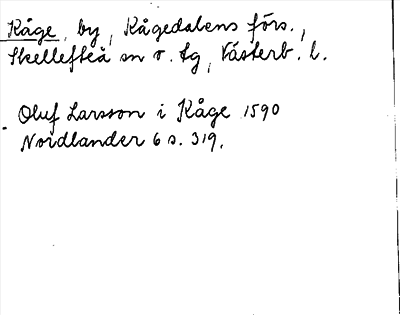 Kåge, by, Kågedalens förs.,
Skellefteå sn o. tg, Västerb. l.
Oluf Larsson i Kåge 1590
Nordlander 6 s. 319.